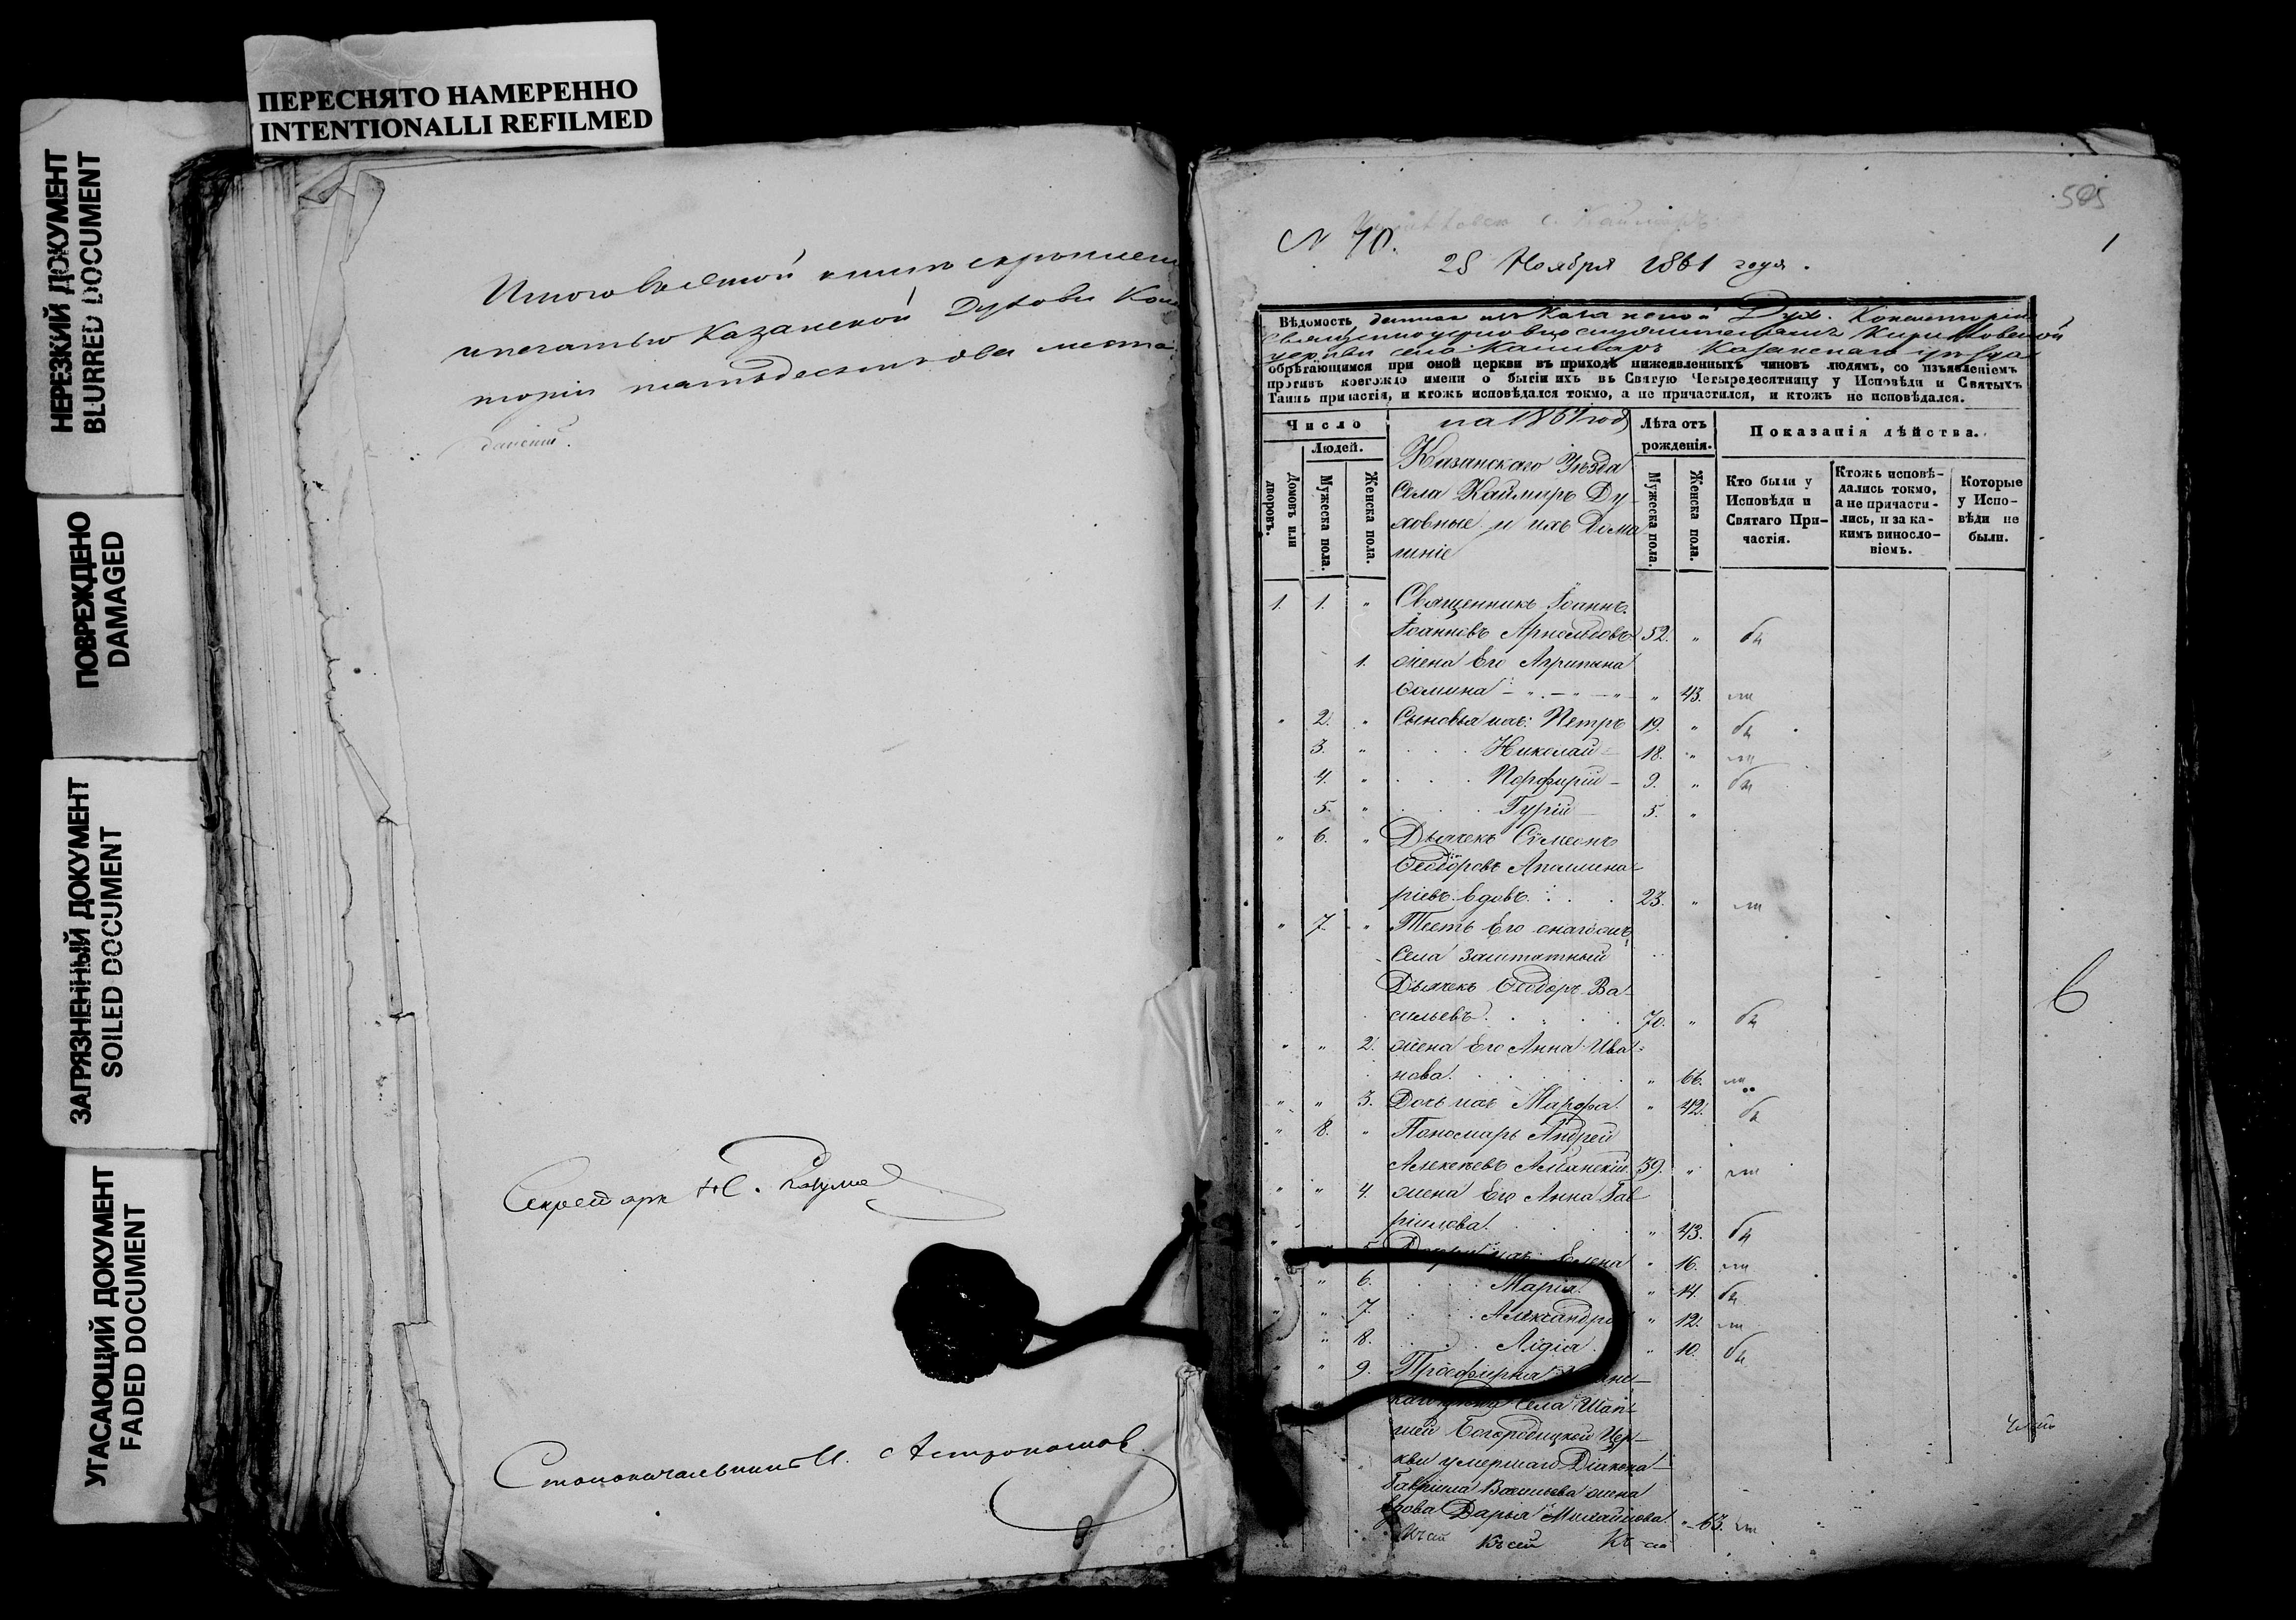 ПЕРЕСНЯТО НАМЕРЕННО
INTENTIONALLI REFILMED
НЕРЕЗКИЙ ДОКУМЕНТ
BLURRED DOCUMENT
ПОВРЕЖДЕНО
DAMAGED
ЗАГРЯЗНЕННЫЙ ДОКУМЕНТ
SOILED DOCUMENT
УГАСАЮЩИЙ ДОКУМЕНТ
FADED DOCUMENT
Итого въ этой книгѣ скрѣпленн
и печатью Казанской Духовн. Кон
торіи пятьдесятъ два листа
Секретарь
Столоначальникъ И. Астрономов
505
с. Каймаръ
N 70.
1
28 Ноября 1861 года.
Вѣдомость данная изъ Казанской Дух. Консисторіи
Священноцерковнослужителямъ Кирилловской
церкви села Каймаръ Казанскаго уѣзда
обрѣтающимся при оной церкви въ приходѣ нижеявленныхъ чиновъ людямъ, со изъявленіемъ
противъ коегождо имени о бытіи ихъ въ Святую Четыредесятницу у Исповѣди и Святыхъ
Таинъ причастія, и ктожъ исповѣдался токмо, а не причастился, и ктожъ не исповѣдался.
Число
Людей.
Домовъ или дворовъ.
Мужеска пола.
Женска пола.
на 1861 год
Казанскаго Уѣзда
Села Каймаръ Ду-
ховные и ихъ Дома
шніе
Лѣта отъ рожденія.
Мужеска пола.
Женска пола.
Показанія дѣйства.
Кто были у Исповѣди и Святаго При-частія.
Ктожъ исповѣ-дались токмо, а не причасти-лись, и за ка-кимъ винословіемъ.
Которые у Испо-вѣди не были.
1. 1. " Священникъ Іоаннъ
Іоанновъ Арнольдовъ 52. " бы
1. жена Его Агрипина
Фомина " 43. ли
" 2. " Сыновья ихъ: Петръ 19. " бы
3. " Николай 18. " ли
4. " Порфирій 9. " бы
5. " Гурій 5. "
" 6. " Дьячекъ Сѵмеонъ
Ѳеодоровъ Аполлина-
ріевъ. вдовъ 23. " ли
" 7. " Тесть Его онагожъ
Села заштатный
Дьячекъ Ѳеодоръ Ва-
сильевъ 70. " бы
" " 2. жена Его Анна Ива-
нова " 66. ли
" " 3. Дочь ихъ Марѳа " 42. бы
" 8. " Пономарь Андрей
Алексѣевъ Албанскій. 39. " ли
" " 4. жена Его Анна Гав
ріилова " 43. бы
" " 5. Дочери ихъ: Елена " 16. ли
" " 6. Марія " 14. бы
" " 7. Александра " 12. ли
" " 8. Лидія " 10. бы
" " 9. Просфирня
Села Шап-
шей Богородицкой Цер-
кви умершаго Діакона
Гавріила Васильева жена
вдова Дарья Михайлова. " 63. ли
Къ сей Къ сей Къ сей
6